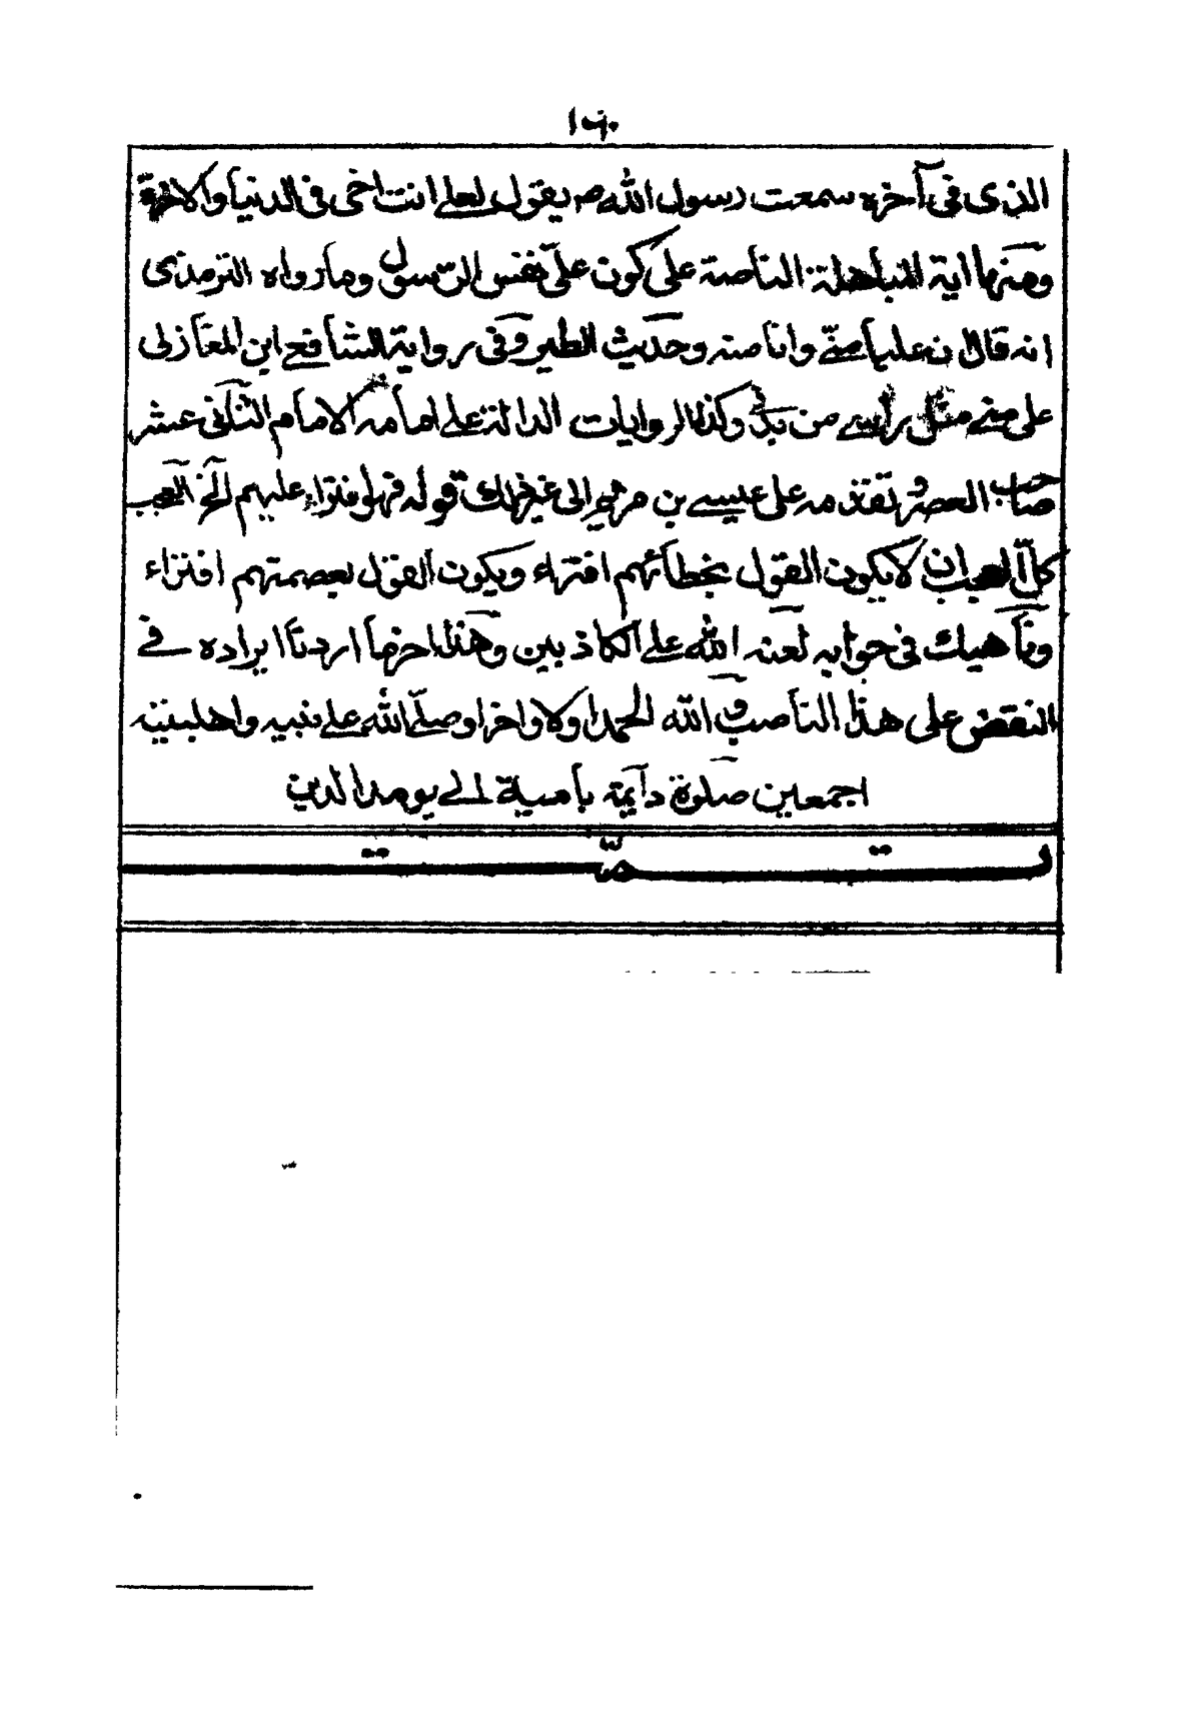 الذى فى آخره سمعت رسول الله ص يقول لعلى انت اخى فى الدنيا والاخرة
ومنها اية المباهلة الناصة على كون على نفس الرسول وما رواه الترمذى
انه قال ان عليا منّى وانا منه وحديث الطير وفى رواية الشافعى ابن المغازلى
على منى مثل رأسى من بدنى وكذا الروايات الدالة على امامه الامام الثانى عشر
صاحب العصر وتقدمه على عيسى بن مريم الى غير ذلك قوله فهو افتراء عليهم الخ العجب
كل العجب ان لا يكون القول بخطائهم افتراء ويكون القول بعصمتهم افتراء
وناهيك فى جوابه لعنه الله على الكاذبين وهذا اخر ما اردنا ايراده فى
النقض على هذا الناصب و لله الحمد اولا واخرا وصلّى الله على نبيه واهلبيته
اجمعين صلوة دايمة باقية الى يوم الدين
تمّت